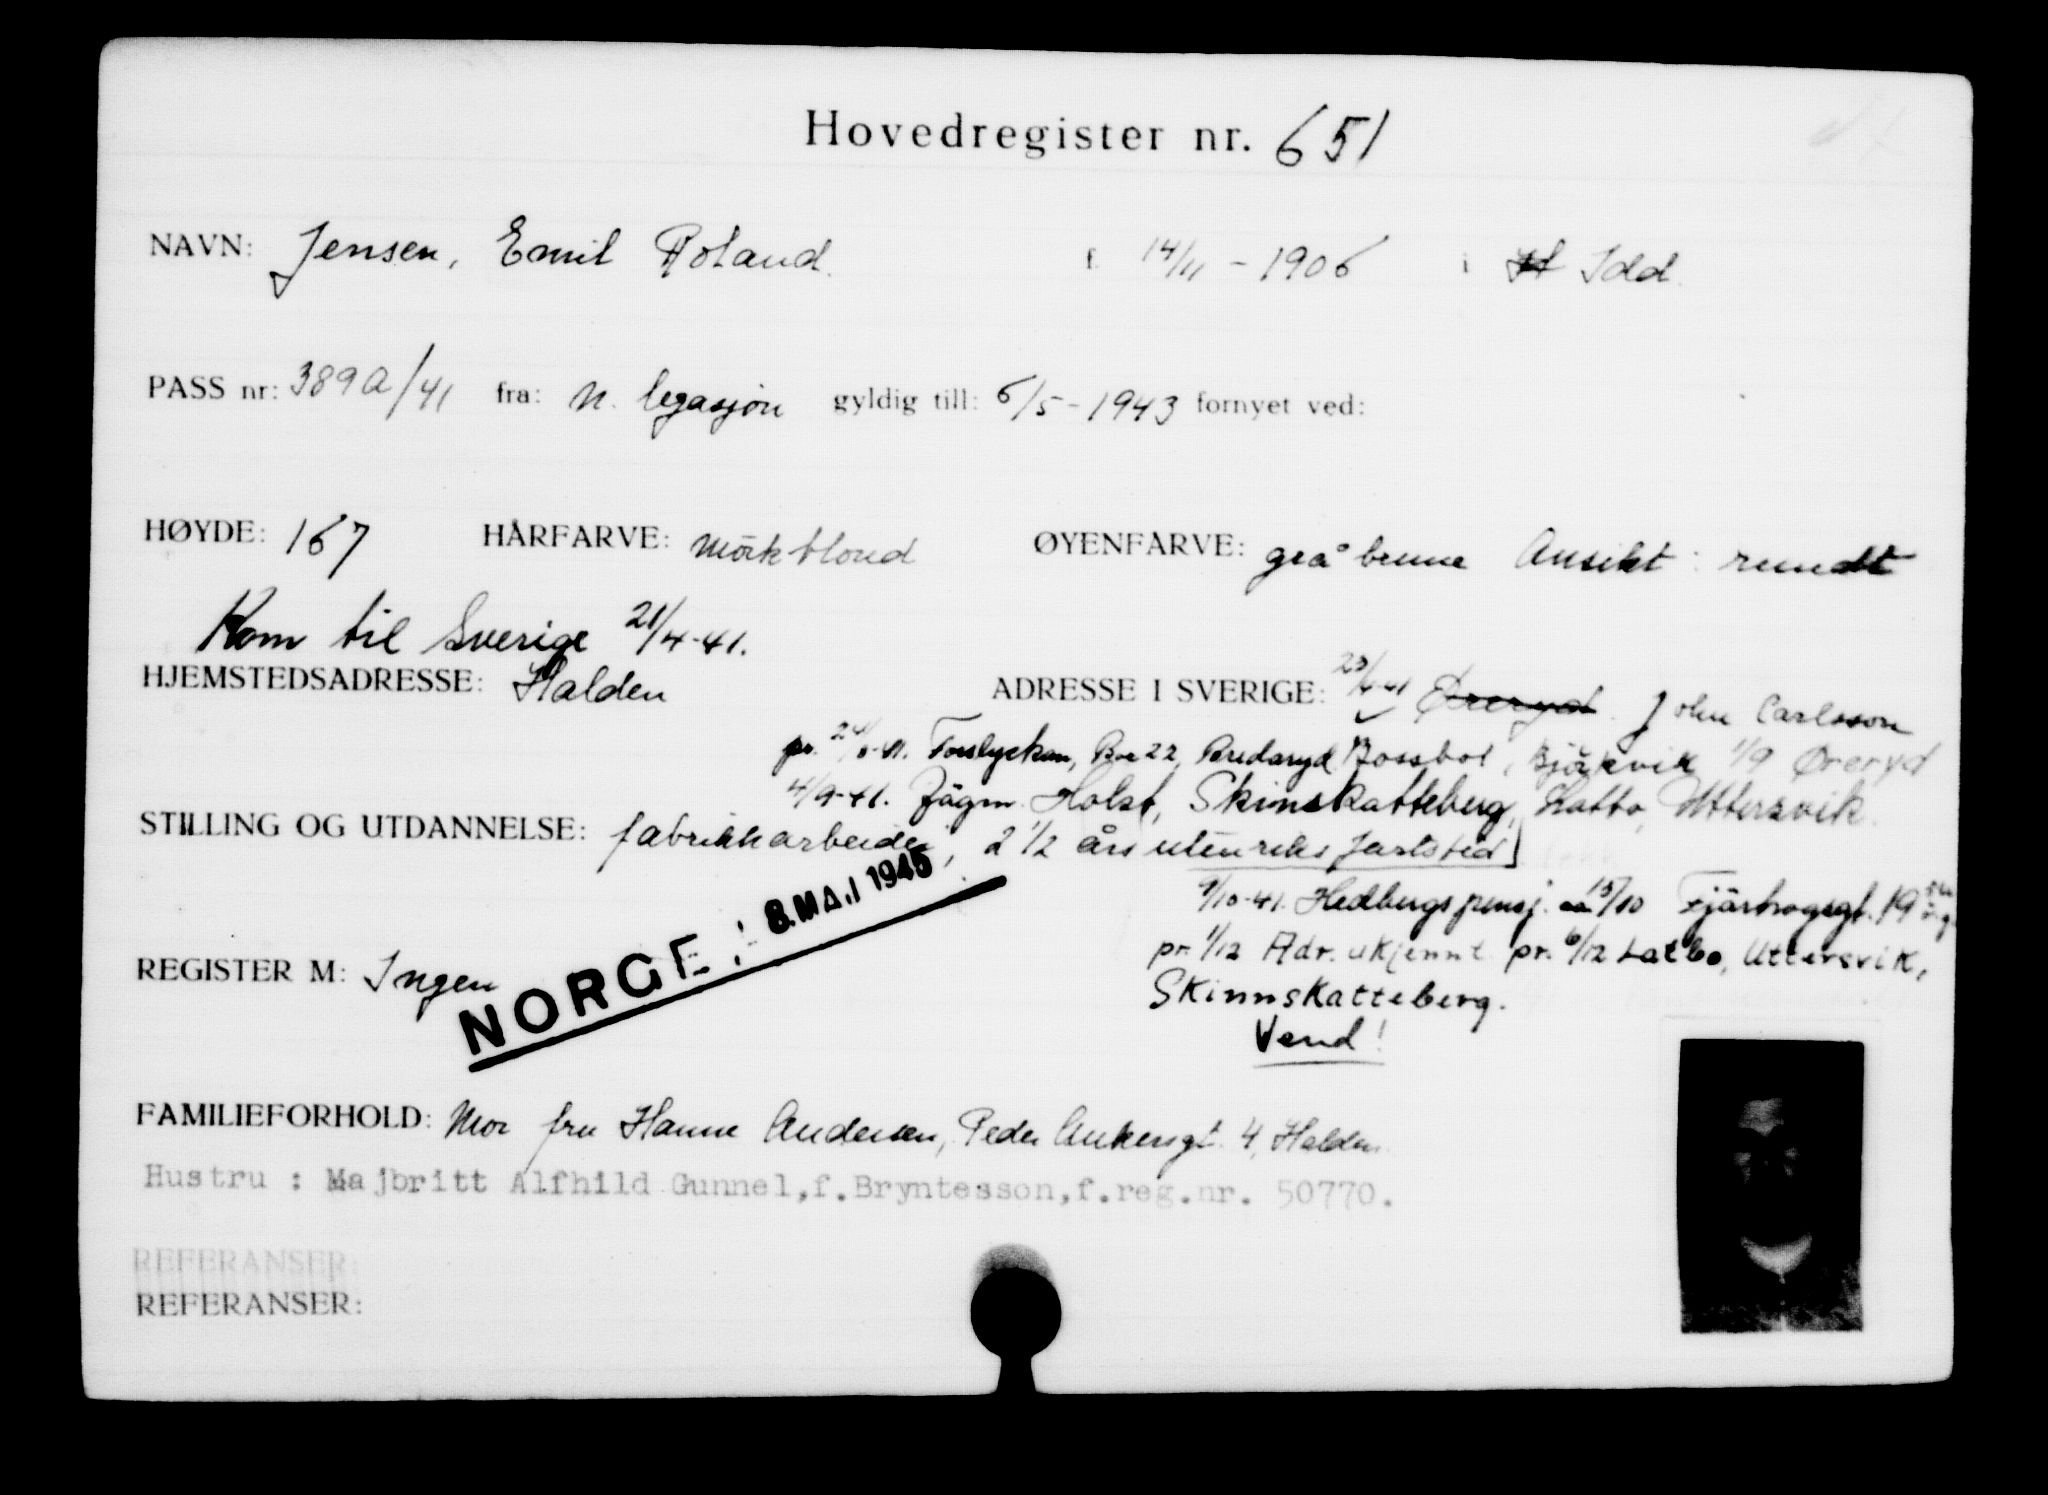 Hovedregister nr. 651
NAVN: Jensen, Emil Roland. f. 14/11 - 1906 i Idd.
PASS nr: 389a/41 fra: N. legasjon gyldig till: 6/5 - 1943 fornyet ved:
HØYDE: 167 HÅRFARVE: mörkblond ØYENFARVE: grå brune Ansikt: rundt
Kom til Sverige 21/4-41.
HJEMSTEDSADRESSE: Halden ADRESSE I SVERIGE: Øreryd. John Carlsson
pr. Forslyckan, Box 22, Bredaryd. Bossbol, Björkvik 1/9 Øreryd
4/9-41. Jägm. Holst, Skinskatteberg, Latbo, Uttersvik.
STILLING OG UTDANNELSE: fabrikkarbeider, 2 1/2 års utenriks fartstid]
9/10-41. Hedbergs pensj. 15/10 Fjärhogsgt. 19
pr. 1/12 Adr. ukjennt pr. 6/12 Latbo, Uttersvik,
Skinnskatteberg.
Vend!
REGISTER M: Ingen
NORGE: 8. MAI 1945
FAMILIEFORHOLD: Mor fru Hanne Andersen, Peder Ankersgt. 4, Halden.
Hustru : Majbritt Alfhild Gunnel,f.Bryntesson,f.reg.nr. 50770.
REFERANSER:
REFERANSER: